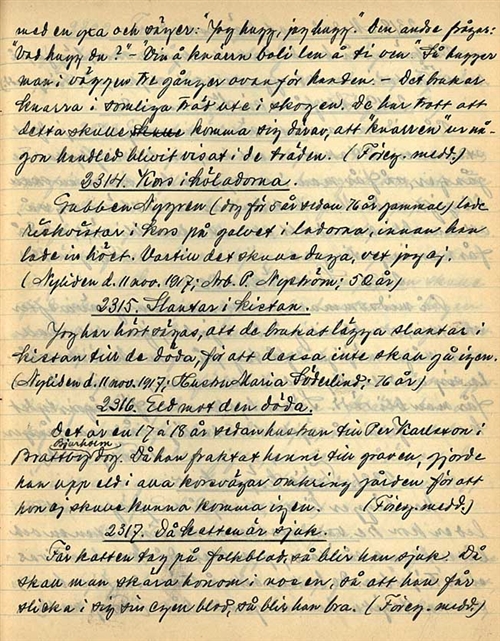 med en yxa och säger: "Jag hugg, jag hugg." Den andre frågar:
"Vad hugg du?" - å knärrn boli len å ti ven" Så hugger
man i väggen tre gånger ovanför handen. - Det brukar
knarra i somliga träd ute i skogen. De har trott att
detta skulle komma sig därav, att "knärren" ur nå-
gon handled blivit visat i de träden. (Föreg. medd.)
2314. Kors i höladorna.
Gubben Nygren (dog för 5 år sedan 76 år gammal) lade
riskvistar i kors på golvet i ladorna, innan han
lade in höet. Vartill det skulle duga, vet jag ej.
(Nyliden d. 11 nov. 1917; Arb. P. Nyström; 52 år)
2315. Slantar i kistan.
Jag har hört sägas, att de brukat lägga slantar i
kistan till de döda, för att dessa inte skall gå igen.
(Nyliden d. 11 nov. 1917; Hustru Maria Söderlind; 76 år)
2316. Eld mot den döda.
Det är en 17 à 18 år sedan hustrun till Per Karlsson i
Bjurholm
dog. Då han fraktat henne till graven, gjorde
han upp eld i alla korsvägar omkring gården för att
hon ej skulle kunna komma igen. (Föreg. medd.)
2317. Då katten är sjuk.
Får katten tag på folkblod, så blir han sjuk. Då
skall man skära honom i nosen, så att han får
slicka i sig sin egen blod, så blir han bra. (Föreg. medd.)